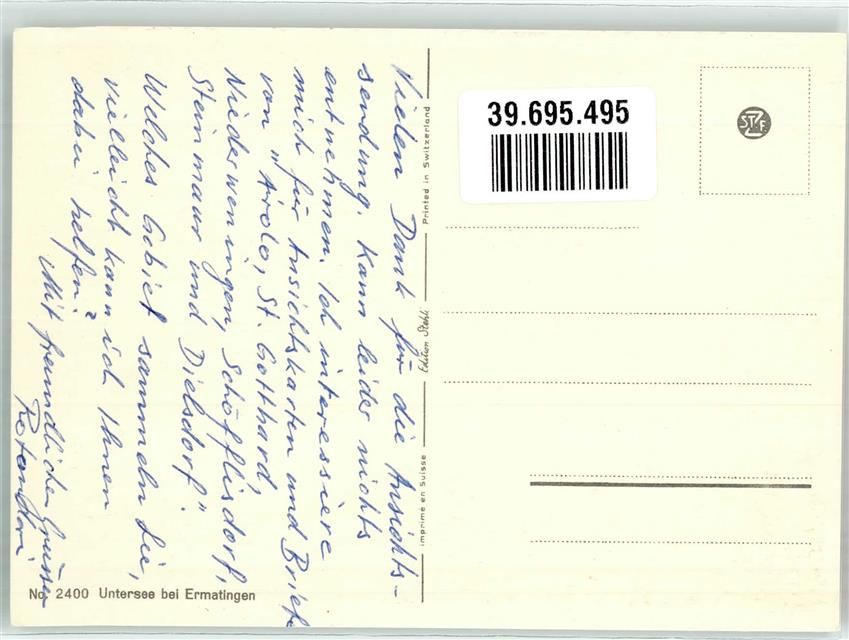 Vielen Dank für die Ansichts-
sendung. Kann leider nichts
entnehmen. Ich interessiere
mich für Ansichtskarten und Briefe
von "Airolo, St. Gotthard,
Niederweningen, Schöfflisdorf,
Steinmaur und Dielsdorf".
Welches Gebiet sammeln Sie,
vielleicht kann ich Ihnen
dabei helfen?
Mit freundlichen Grüssen
No. 2400 Untersee bei Ermatingen
imprimé en Suisse
Edition Stehli
Printed in Switzerland
39.695.495
STZF